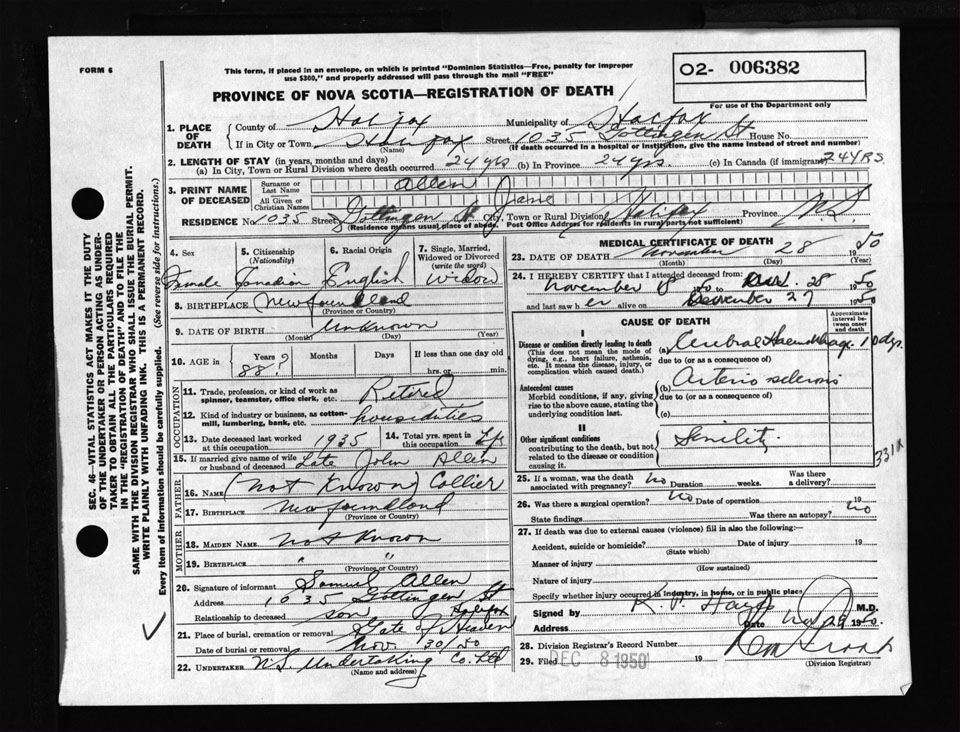 FORM 6
This form, if placed in an envelope, on which is printed "Dominion Statistics—Free, penalty for improper
use $300," and properly addressed will pass through the mail "FREE"
02- 006382
For use of the Department only
PROVINCE OF NOVA SCOTIA—REGISTRATION OF DEATH
1. PLACE OF DEATH
County of Halifax Municipality of Halifax
If in City or Town Halifax Street 1035 Gottingen St House No.
(Name) (If death occurred in a hospital or institution, give the name instead of street and number)
2. LENGTH OF STAY (in years, months and days)
(a) In City, Town or Rural Division where death occurred 24 yrs (b) In Province 24 yrs. (c) In Canada (if immigrant) 24 YRS.
3. PRINT NAME OF DECEASED
Surname or Last Name Allen
All Given or Christian Names Jane
RESIDENCE No. 1035 Street Gottingen St City, Town or Rural Division Halifax Province N.S.
(Residence means usual place of abode. Post Office Address for residents in rural parts not sufficient)
4. Sex
Female
5. Citizenship (Nationality)
Canadian
6. Racial Origin
English
7. Single, Married, Widowed or Divorced (write the word)
Widow
8. BIRTHPLACE Newfoundland
(Province or Country)
9. DATE OF BIRTH Unknown
(Month) (Day) (Year)
10. AGE in Years Months Days If less than one day old
88? hrs. or min.
OCCUPATION
11. Trade, profession, or kind of work as spinner, teamster, office clerk, etc. Retired
12. Kind of industry or business, as cotton-mill, lumbering, bank, etc. house duties
13. Date deceased last worked at this occupation 1935
14. Total yrs. spent in this occupation
15. If married give name of wife or husband of deceased Late John Allen
FATHER
16. NAME (not known) Collier
17. BIRTHPLACE Newfoundland
(Province or Country)
MOTHER
18. MAIDEN NAME not known
19. BIRTHPLACE " "
(Province or Country)
20. Signature of informant Samuel Allen
Address 1035 Gottingen St Halifax
Relationship to deceased son
21. Place of burial, cremation or removal Gate of Heaven
Date of burial or removal Nov. 30/50
22. UNDERTAKER N.S. Undertaking Co. Ltd
(Name and address)
MEDICAL CERTIFICATE OF DEATH
23. DATE OF DEATH November 28 1950
(Month) (Day) (Year)
24. I HEREBY CERTIFY that I attended deceased from:
November 1950 to 28 1950
and last saw her alive on 27 1950
CAUSE OF DEATH
Approximate interval between onset and death
I
Disease or condition directly leading to death
(This does not mean the mode of dying, e.g., heart failure, asthenia, etc. It means the disease, injury, or complication which caused death.)
(a) Cerebral Haemorrhage 10 dys.
due to (or as a consequence of)
Antecedent causes
Morbid conditions, if any, giving rise to the above cause, stating the underlying condition last.
(b) Arterio sclerosis
due to (or as a consequence of)
(c)
II
Other significant conditions
contributing to the death, but not related to the disease or condition causing it.
Senility
331X
25. If a woman, was the death associated with pregnancy? No Duration weeks. Was there a delivery?
26. Was there a surgical operation? No Date of operation 19
State findings Was there an autopsy? No
27. If death was due to external causes (violence) fill in also the following:—
Accident, suicide or homicide? Date of injury 19
(State which)
Manner of injury
(How sustained)
Nature of injury
Specify whether injury occurred in industry, in home, or in public place
Signed by M.D.
Address Date 1950.
28. Division Registrar's Record Number
29. Filed DEC 8 1950 19
(Division Registrar)
SEC. 46—VITAL STATISTICS ACT MAKES IT THE DUTY
OF THE UNDERTAKER OR PERSON ACTING AS UNDERTAKER
TO OBTAIN ALL THE PARTICULARS REQUIRED
IN THE "REGISTRATION OF DEATH" AND TO FILE THE
SAME WITH THE DIVISION REGISTRAR WHO SHALL ISSUE THE BURIAL PERMIT.
WRITE PLAINLY WITH UNFADING INK. THIS IS A PERMANENT RECORD.
Every item of information should be carefully supplied. (See reverse side for instructions.)